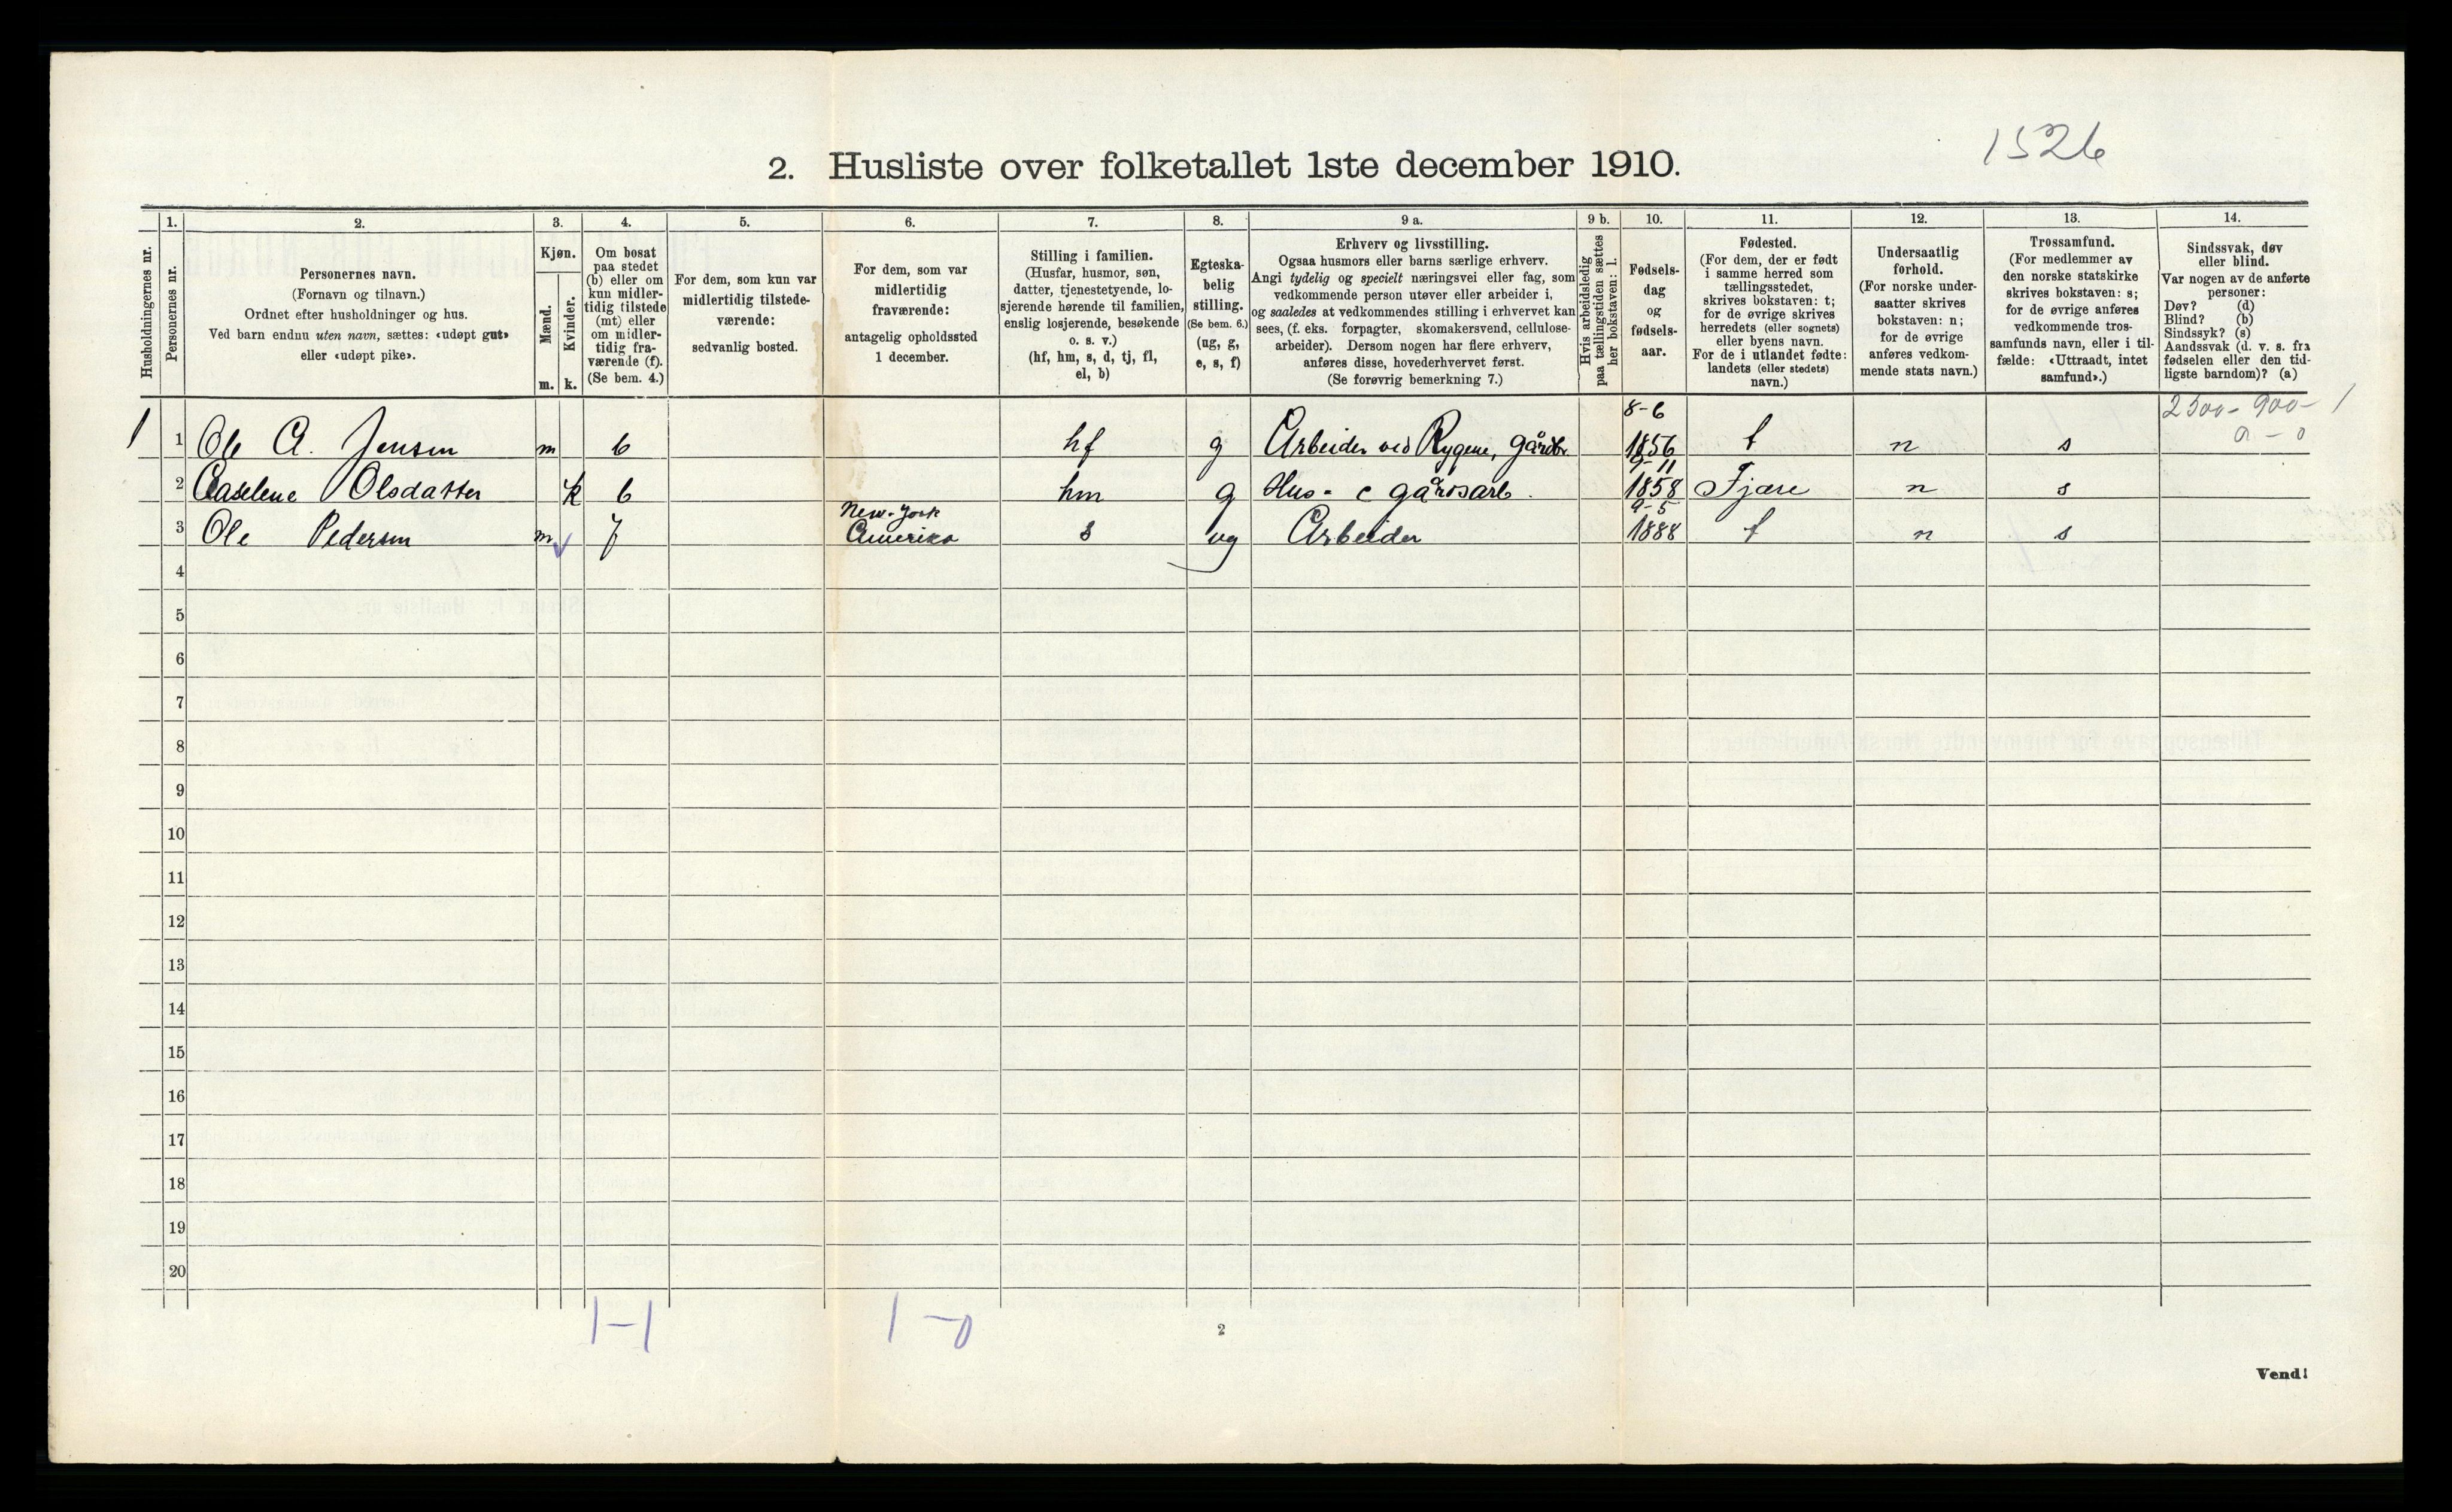 1526
2. Husliste over folketallet 1ste december 1910.
Husholdningernes nr.
1.
Personernes nr.
2.
Personernes navn.
(Fornavn og tilnavn.)
Ordnet efter husholdninger og hus.
Ved barn endnu uten navn, sættes: «udøpt gut»
eller «udøpt pike».
3.
Kjøn.
Mænd.
Kvinder.
m. k.
4.
Om bosat
paa stedet
(b) eller om
kun midler-
tidig tilstede
(mt) eller
om midler-
tidig fra-
værende (f).
(Se bem. 4.)
5.
For dem, som kun var
midlertidig tilstede-
værende:
sedvanlig bosted.
6.
For dem, som var
midlertidig
fraværende:
antagelig opholdssted
1 december.
7.
Stilling i familien.
(Husfar, husmor, søn,
datter, tjenestetyende, lo-
sjerende hørende til familien,
enslig losjerende, besøkende
o. s. v.)
(hf, hm, s, d, tj, fl,
el, b)
8.
Egteska-
belig
stilling.
(Se bem. 6.)
(ug, g,
e, s, f)
9 a.
Erhverv og livsstilling.
Ogsaa husmors eller barns særlige erhverv.
Angi tydelig og specielt næringsvei eller fag, som
vedkommende person utøver eller arbeider i,
og saaledes at vedkommendes stilling i erhvervet kan
sees, (f. eks. forpagter, skomakersvend, cellulose-
arbeider). Dersom nogen har flere erhverv,
anføres disse, hovederhvervet først.
(Se forøvrig bemerkning 7.)
9 b.
Hvis arbeidsledig
paa tællingstiden sættes
her bokstaven: l.
10.
Fødsels-
dag
og
fødsels-
aar.
11.
Fødested.
(For dem, der er født
i samme herred som
tællingsstedet,
skrives bokstaven: t;
for de øvrige skrives
herredets (eller sognets)
eller byens navn.
For de i utlandet fødte:
landets (eller stedets)
navn.)
12.
Undersaatlig
forhold.
(For norske under-
saatter skrives
bokstaven: n;
for de øvrige
anføres vedkom-
mende stats navn.)
13.
Trossamfund.
(For medlemmer av
den norske statskirke
skrives bokstaven: s;
for de øvrige anføres
vedkommende tros-
samfunds navn, eller i til-
fælde: «Uttraadt, intet
samfund».)
14.
Sindssvak, døv
eller blind.
Var nogen av de anførte
personer:
Døv? (d)
Blind? (b)
Sindssyk? (s)
Aandssvak (d. v. s. fra
fødselen eller den tid-
ligste barndom)? (a)
8-6 2500- 900- 1
1 1 Ole A. Jensen m b hf g Arbeider ved Rygene, gårdbr. 1856 t n s 0 - 0
9-11
2 Caselene Olsdatter k b hm g Hus- c gårdsarb. 1858 Fjære n s
New-York 9-5
3 Ole Pedersen m f Amerika s ug Arbeider 1888 t n s
4
5
6
7
8
9
10
11
12
13
14
15
16
17
18
19
20
1-1 1-0
2
Vend!